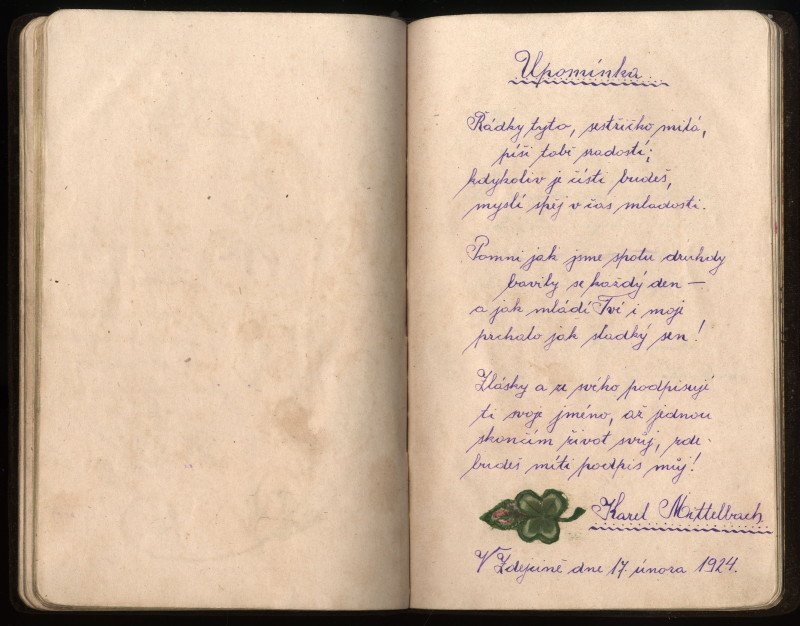 Upomínka
Řádky tyto, sestřičko milá,
píši tobě s radostí;
kdykoliv je čísti budeš,
myslí spěj v čas mladosti.
Pomni jak jsme spolu druhdy
bavily se každý den —
a jak mládí Tvé i moje
prchalo jak sladký sen!
Z lásky a ze svého podpisuji
ti svoje jméno, až jednou
skončím život svůj, zde-
budeš míti podpis můj!
Karel Mittelbach
V Zdejcině dne 17. února 1924.